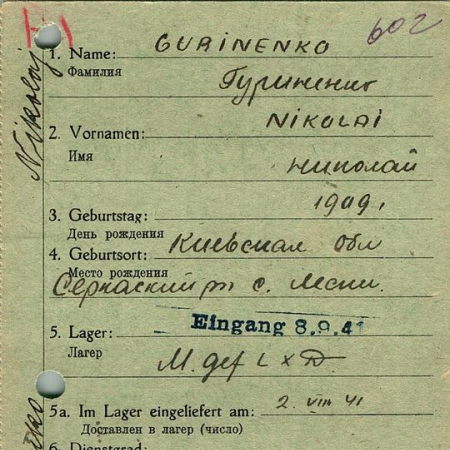 602
GURINENKO
1. Name:
Фамилия
Гуриненко
NIKOLAI
2. Vornamen:
Имя
николай
1909,
3. Geburtstag:
День рождения
Киевская обл
4. Geburtsort:
Место рождения
с.
Eingang 8.9.41
5. Lager:
Лагер
2. VIII 41
5a. Im Lager eingeliefert am:
Доставлен в лагер (число)
6. Dienstgrad:
Nikolaj